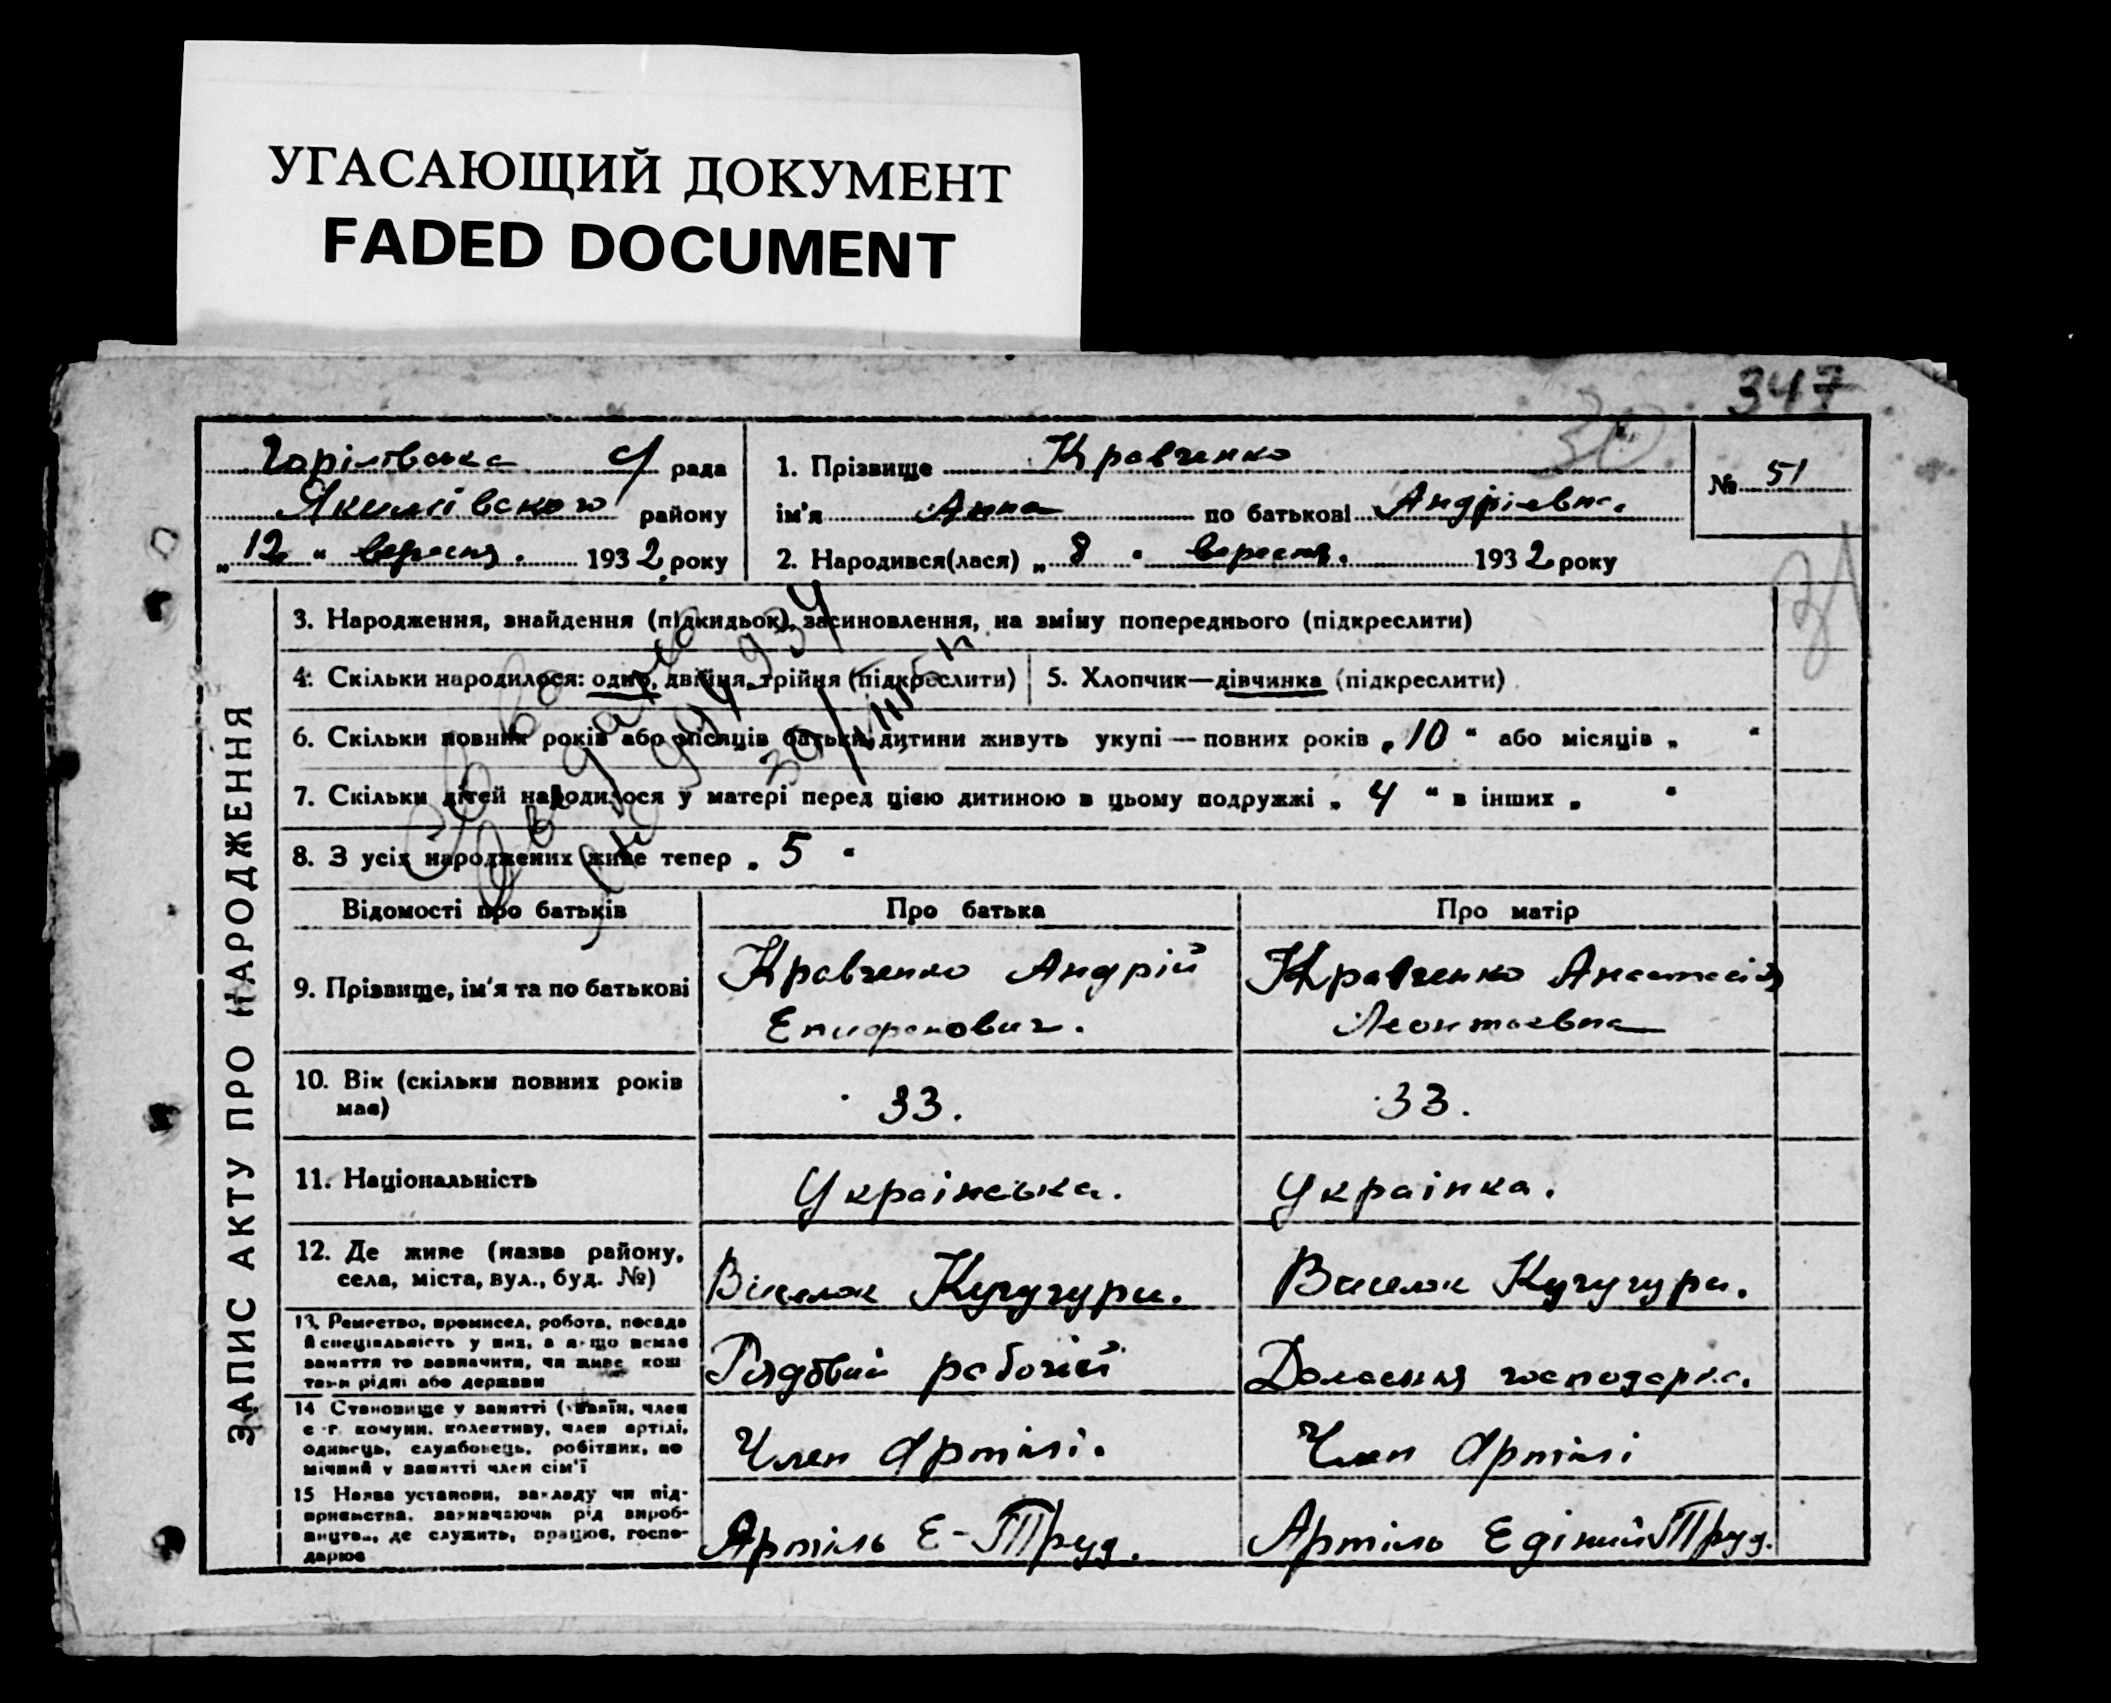 УГАСАЮЩИЙ ДОКУМЕНТ
FADED DOCUMENT
347
30
рада
Якимівського району
„12“ вересня. 1932 року
1. Прізвище Кравченко
ім'я Анна по батькові Андріевна.
2. Народився(лася) „8“ вересня. 1932 року
№ 51
31
ЗАПИС АКТУ ПРО НАРОДЖЕННЯ
3. Народження, знайдення (підкидьок), засиновлення, на зміну попереднього (підкреслити)
4. Скільки народилося: одно, двійня, трійня (підкреслити)
5. Хлопчик—дівчинка (підкреслити)
6. Скільки повних років або місяців батьки дитини живуть укупі — повних років „10“ або місяців „ “
7. Скільки дітей народилося у матері перед цією дитиною в цьому подружжі „4“ в інших „ “
8. З усіх народжених живе тепер „5“
Відомості про батьків
Про батька
Про матір
9. Прізвище, ім'я та по батькові
Кравченко Андрій
Епифанович.
Кравченко Анастасія
Леонтаевна
10. Вік (скільки повних років
має)
33.
33.
11. Національність
Українська.
Українка.
12. Де живе (назва району,
села, міста, вул., буд. №)
Віселок Кучугури.
Виселок Кучугури.
13. Ремество, промисел, робота, посада
й спеціяльність у них, а якщо немає
заняття то зазначити, чи живе кош-
тами рідні або держави
Рядовий рабочий
Домашня господарка.
14 Становище у занятті (хазяїн, член
с.-г. комуни, колективу, член артілі,
одинець, службовець, робітник, по
мічний у занятті член сім'ї
Член Артілі.
Член Артілі
15 Назва установи, закладу чи під-
приємства, зазначаючи рід вироб-
ництва, де служить, працює, госпо-
дарює
Артіль Е-Труд.
Артіль Едіний Труд.